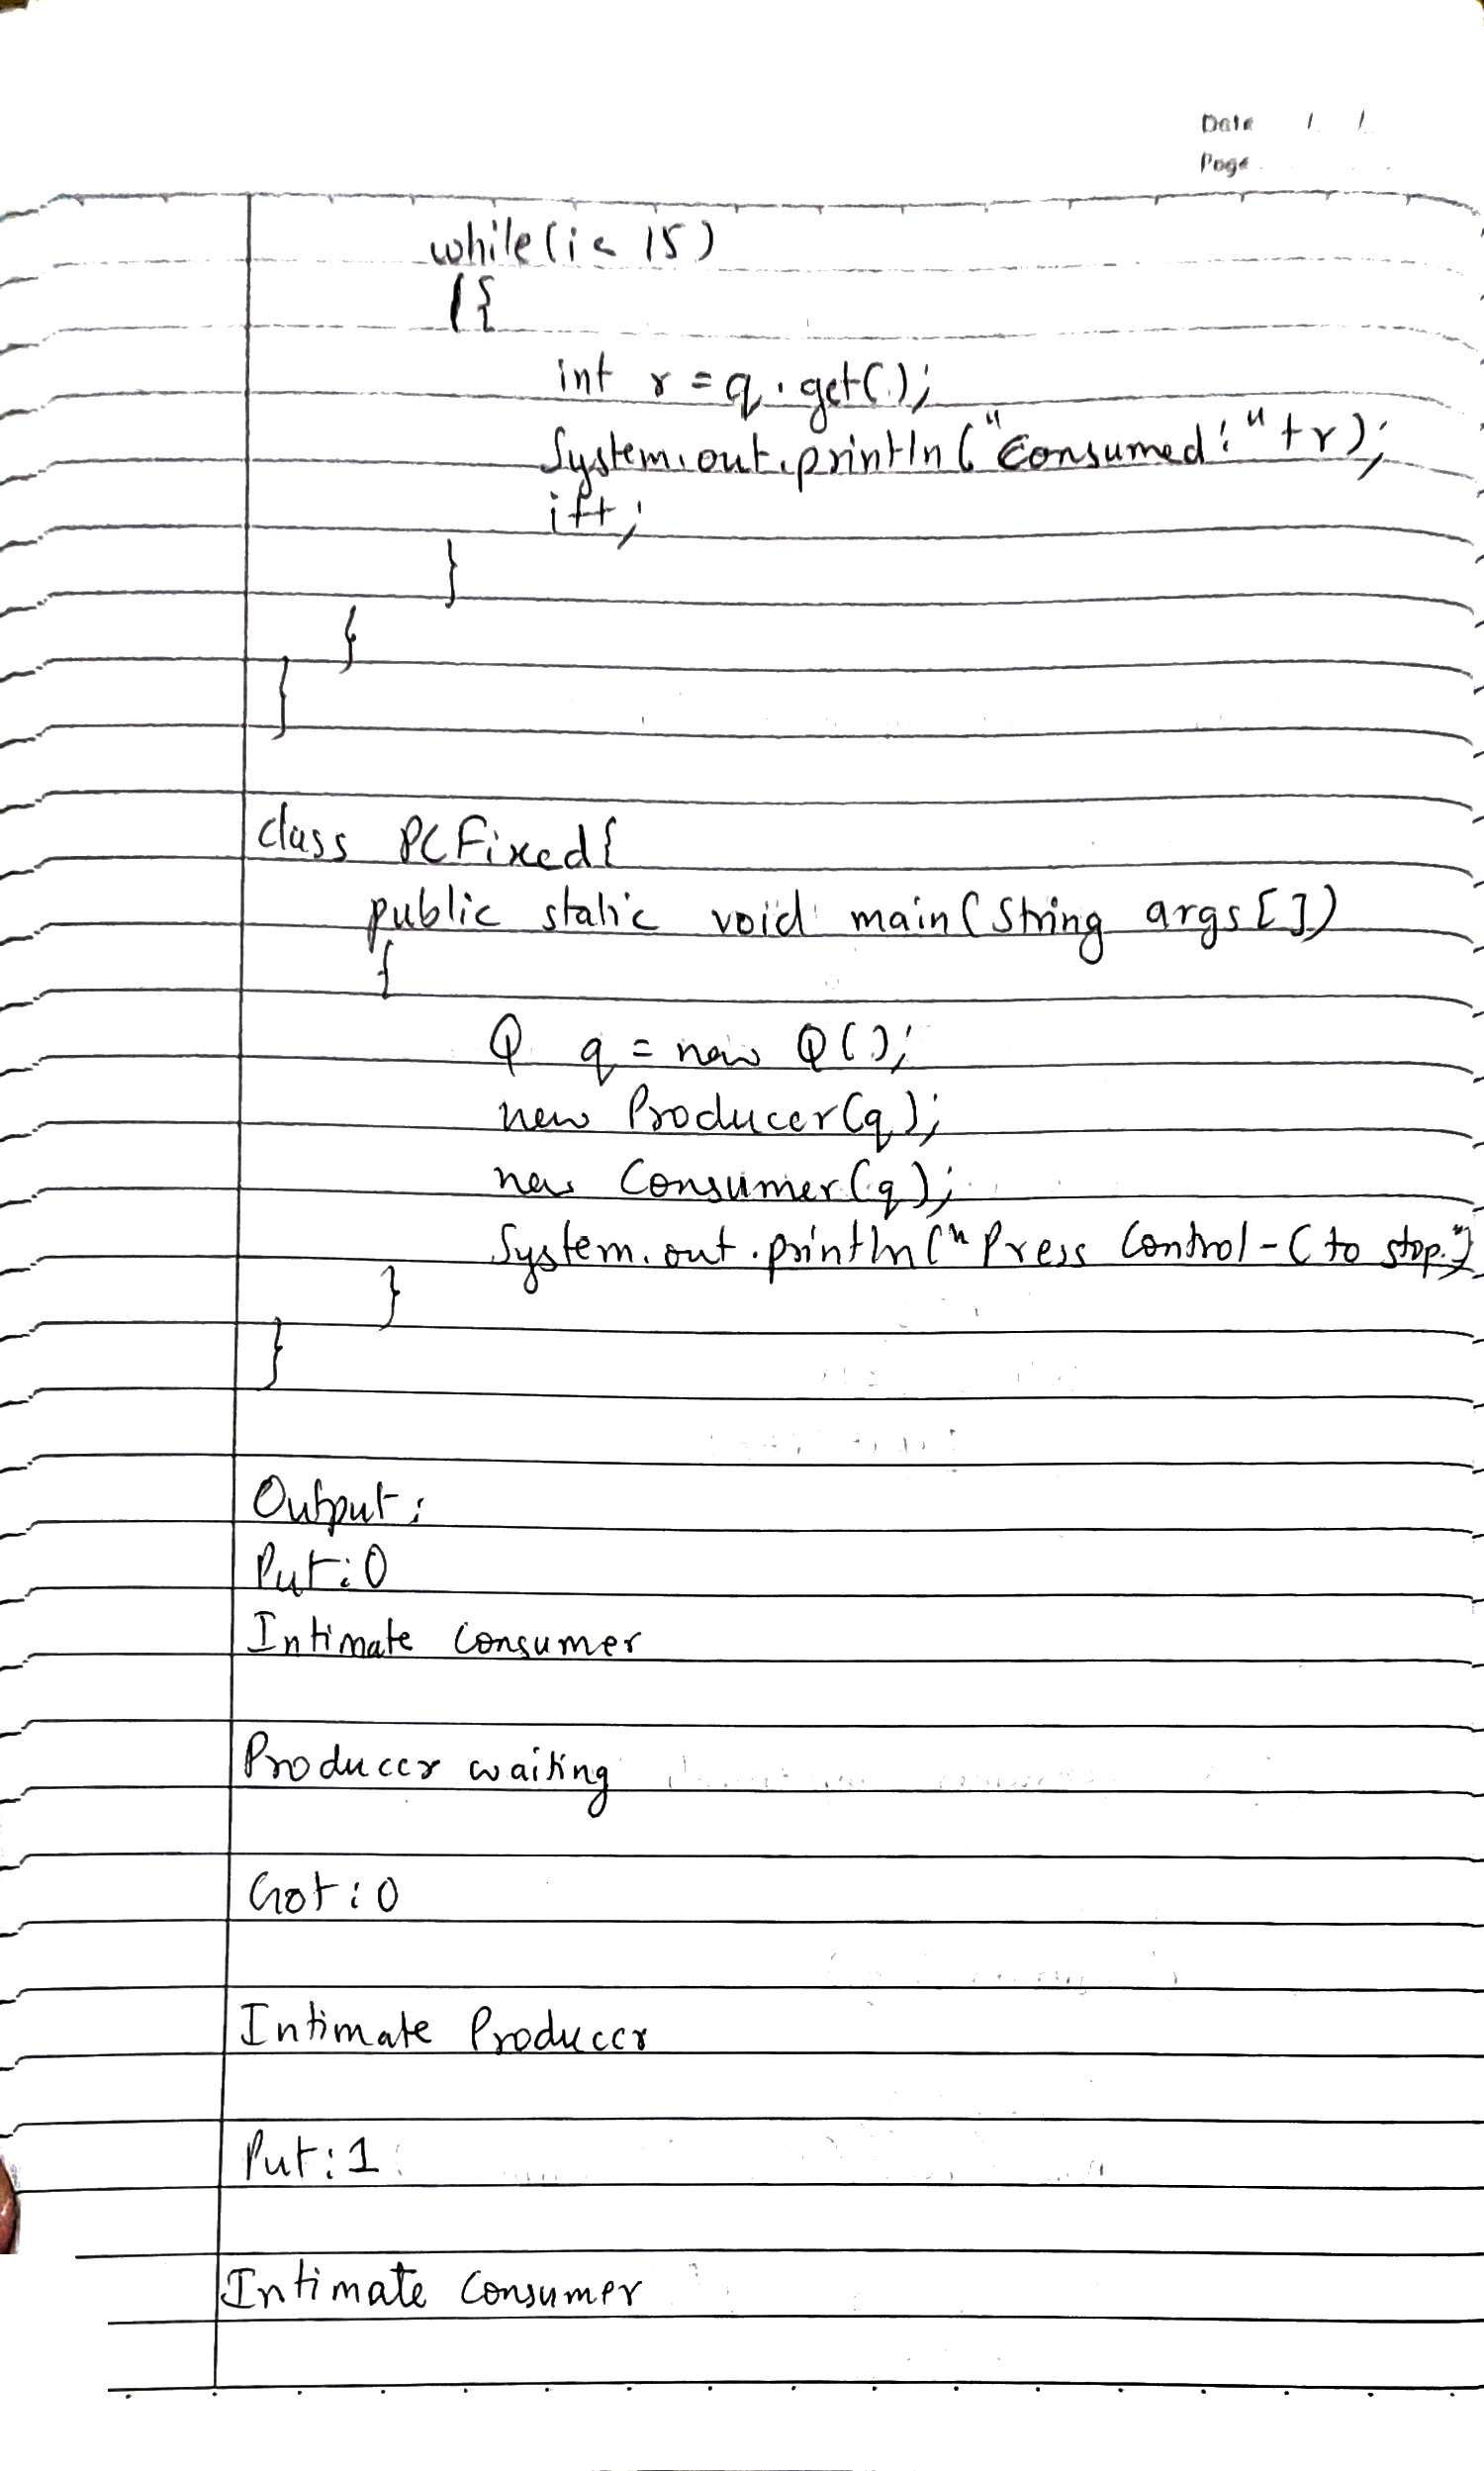 Date / /
Page
while(i< 15)
{
int r = q.get();
System.out.println("Consumed:"+r);
i++;
}
}
}
class PCFixed{
public static void main(String args[])
{
Q q = new Q();
new Producer(q);
new Consumer(q);
System.out.println("Press Control-C to stop.")
}
}
Output:
Put:0
Intimate Consumer
Producer waiting
Got:0
Intimate Producer
Put:1
Intimate Consumer